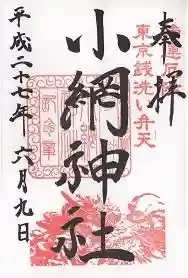 奉拝
東京銭洗い弁天
小網神社
平成二十七年六月九日